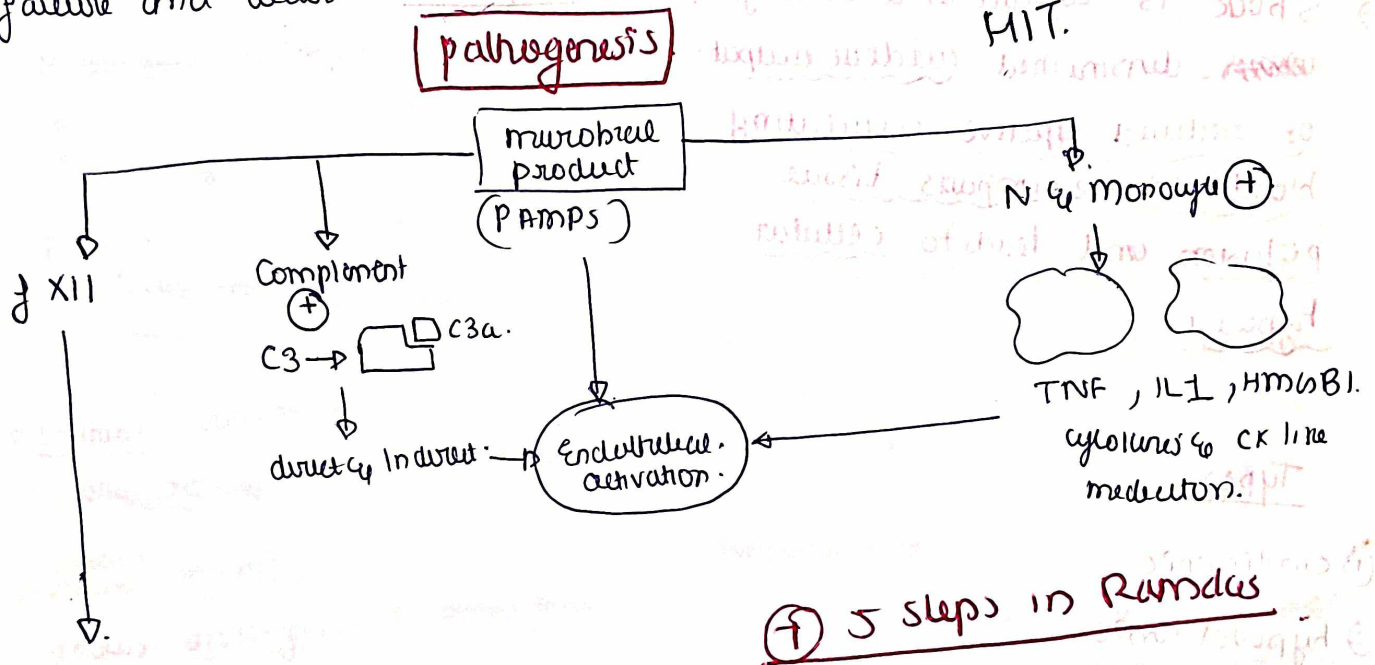 failure and
HIT.
pathogenesis
microbial
product
(PAMPs)
f XII
Complement
+
C3
C3a.
direct & Indirect.
Endothelial.
activation.
N & monocyte +
TNF, IL1, HMGB1.
cytokines & CK line
mediators.
+ 5 steps in Ramdas